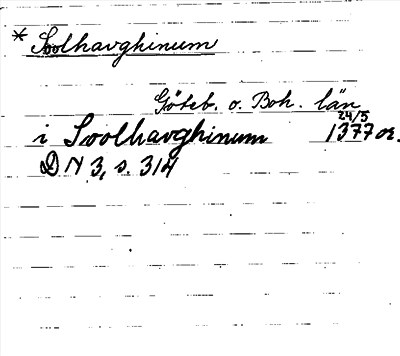 * Svolhavghinum
Göteb. o. Boh. län
i Svolhavghinum 24/5 1377 or.
DN 3, s. 314